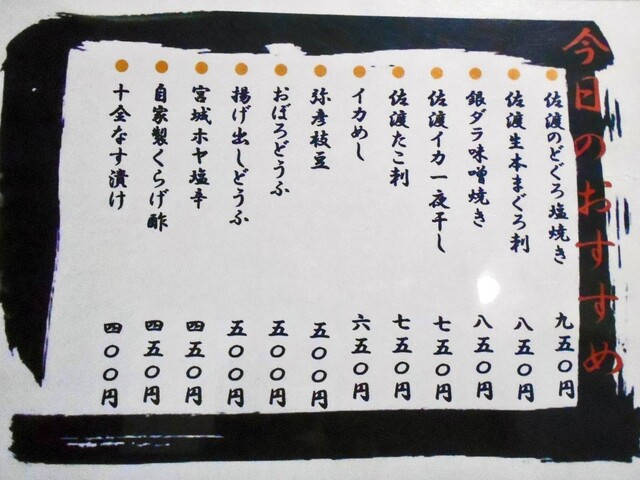 今日のおすすめ
佐渡のどぐろ塩焼き 九五〇円
佐渡生本まぐろ刺 八五〇円
銀ダラ味噌焼き 八五〇円
佐渡イカ一夜干し 七五〇円
佐渡たこ刺 七五〇円
イカめし 六五〇円
弥彦枝豆 五〇〇円
おぼろどうふ 五〇〇円
揚げ出しどうふ 五〇〇円
宮城ホヤ塩辛 四五〇円
自家製くらげ酢 四五〇円
十全なす漬け 四〇〇円